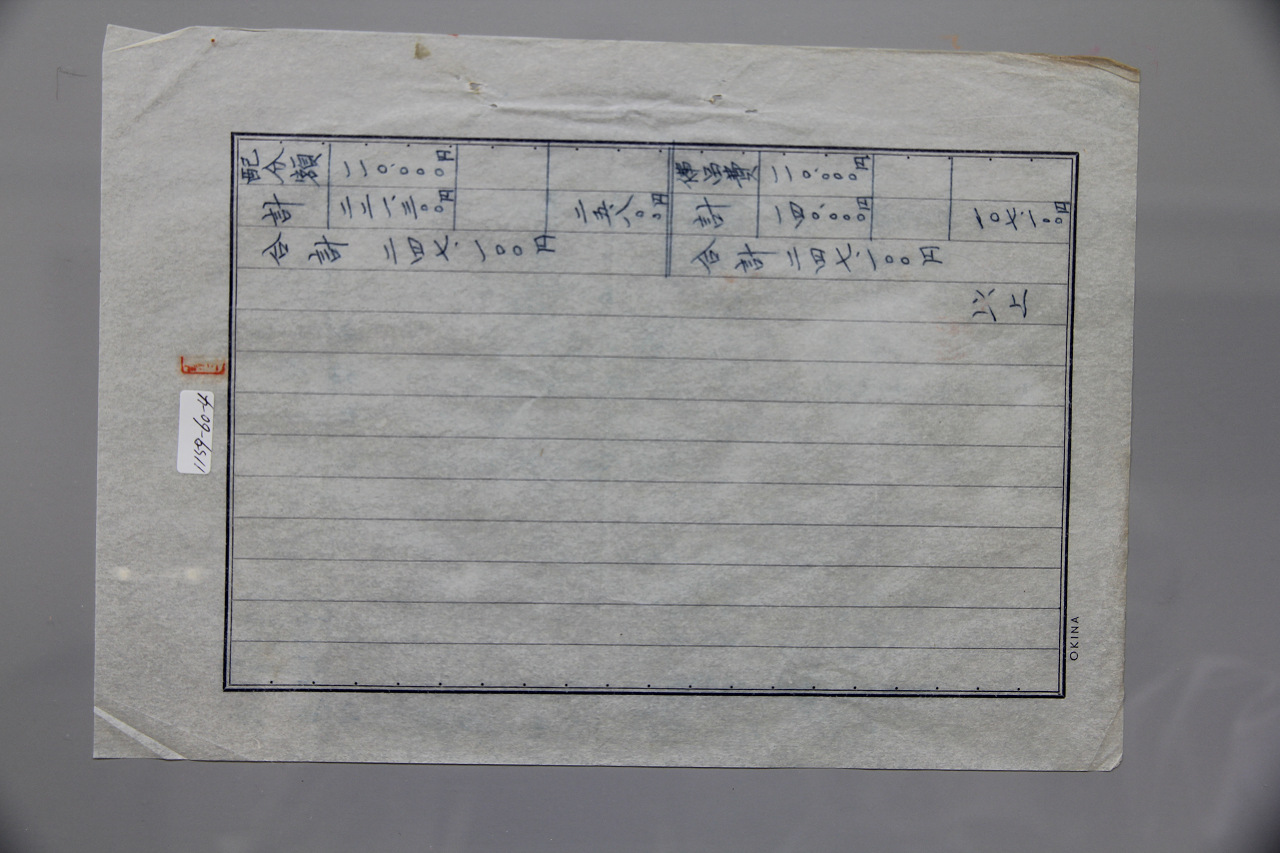 配分額 二〇、〇〇〇円 備品費 二〇、〇〇〇円
合計 二二一、三〇〇円 二五、八〇〇円 計 一四〇、〇〇〇円 一〇七、一〇〇円
合計 二四七、一〇〇円 合計 二四七、一〇〇円
以上
1159-60-4
OKINA